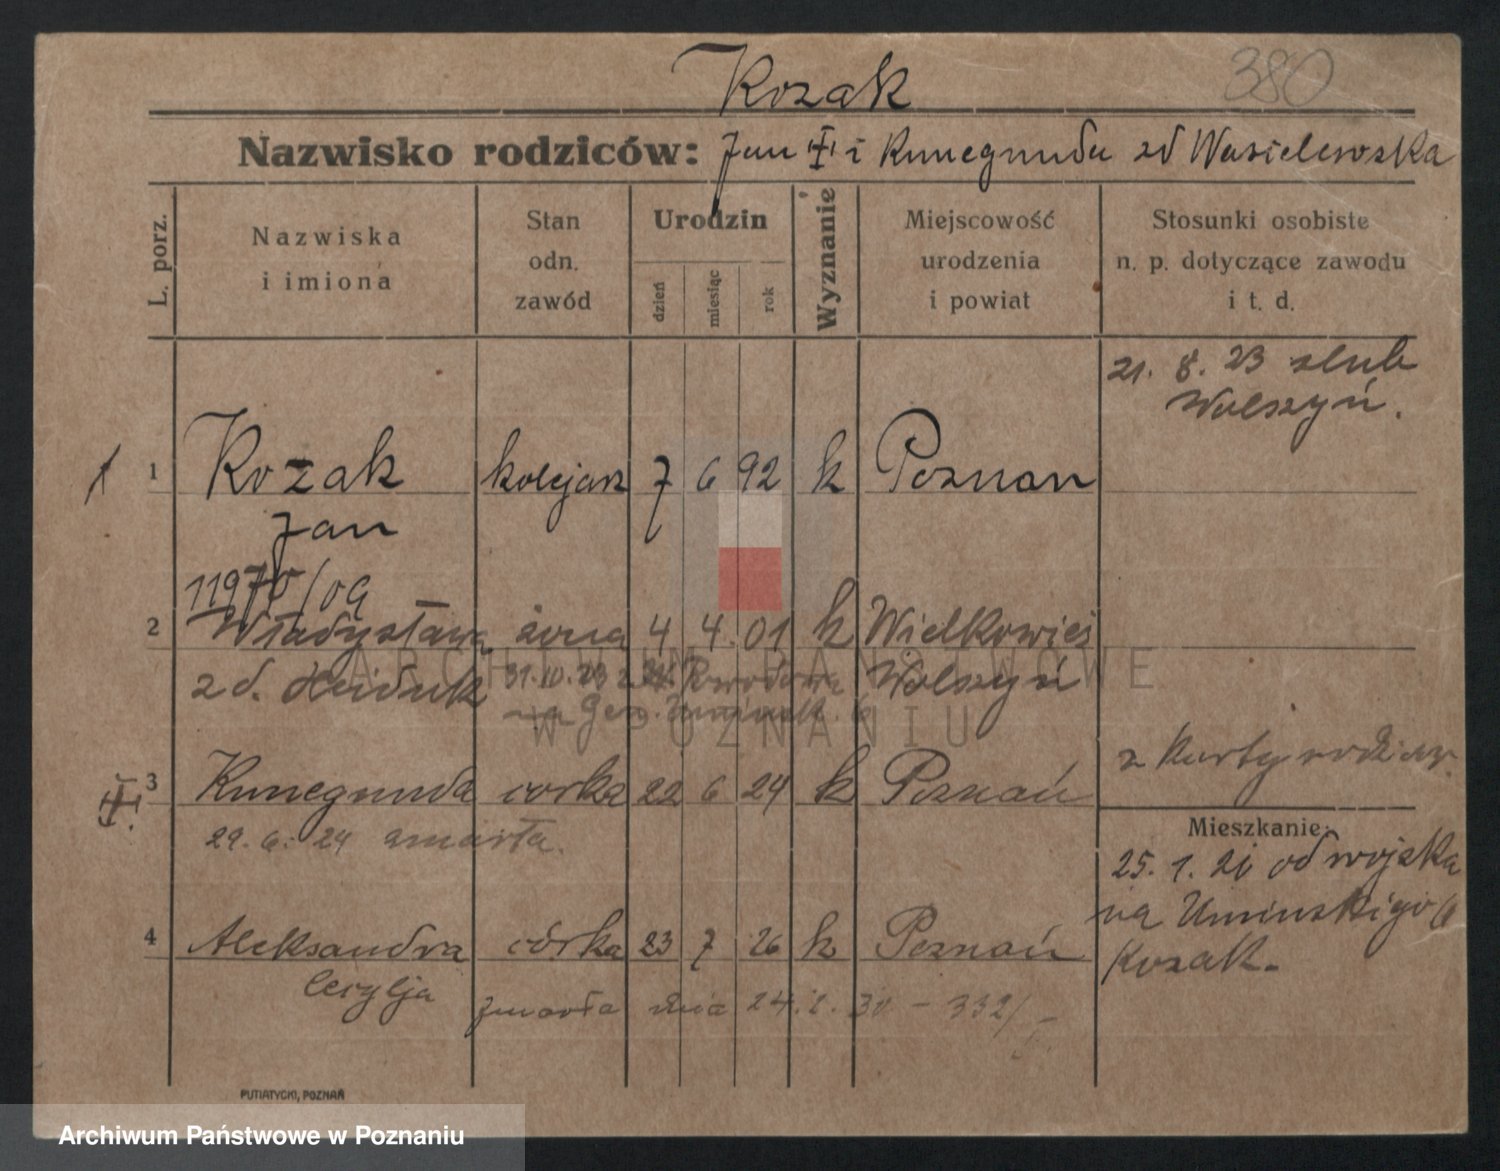 Kozak
380
Nazwisko rodziców: Jan i Kunegunda zd Wasielewska
L. porz.
Nazwiska
i imiona
Stan
odn.
zawód
Urodzin
dzień
miesiąc
rok
Wyznanie
Miejscowość
urodzenia
i powiat
Stosunki osobiste
n. p. dotyczące zawodu
i t. d.
21. 8. 23 slub
Wolszyń.
1 Kozak kolejarz 7 6 92 k Poznan
Jan
11970/09
2 Władysława żona 4 4. 01 k Wielkowieś
zd. Haduk 31.10.23 Wolszyń
na Gen.
ARCHIWUM PAŃSTWOWE
W POZNANIU
z Karty rodziców.
3 Kunegunda corka 22 6 24 k Poznań
29. 6. 24 zmarła.
Mieszkanie:
25. 1. 21 od wojska
na Uminskiego 6
Kozak.
4 Aleksandra córka 23 7 26 k Poznań
Cecylja
zmarła dnia 24. 2. 30 - 332/
PUTIATYCKI, POZNAŃ
Archiwum Państwowe w Poznaniu